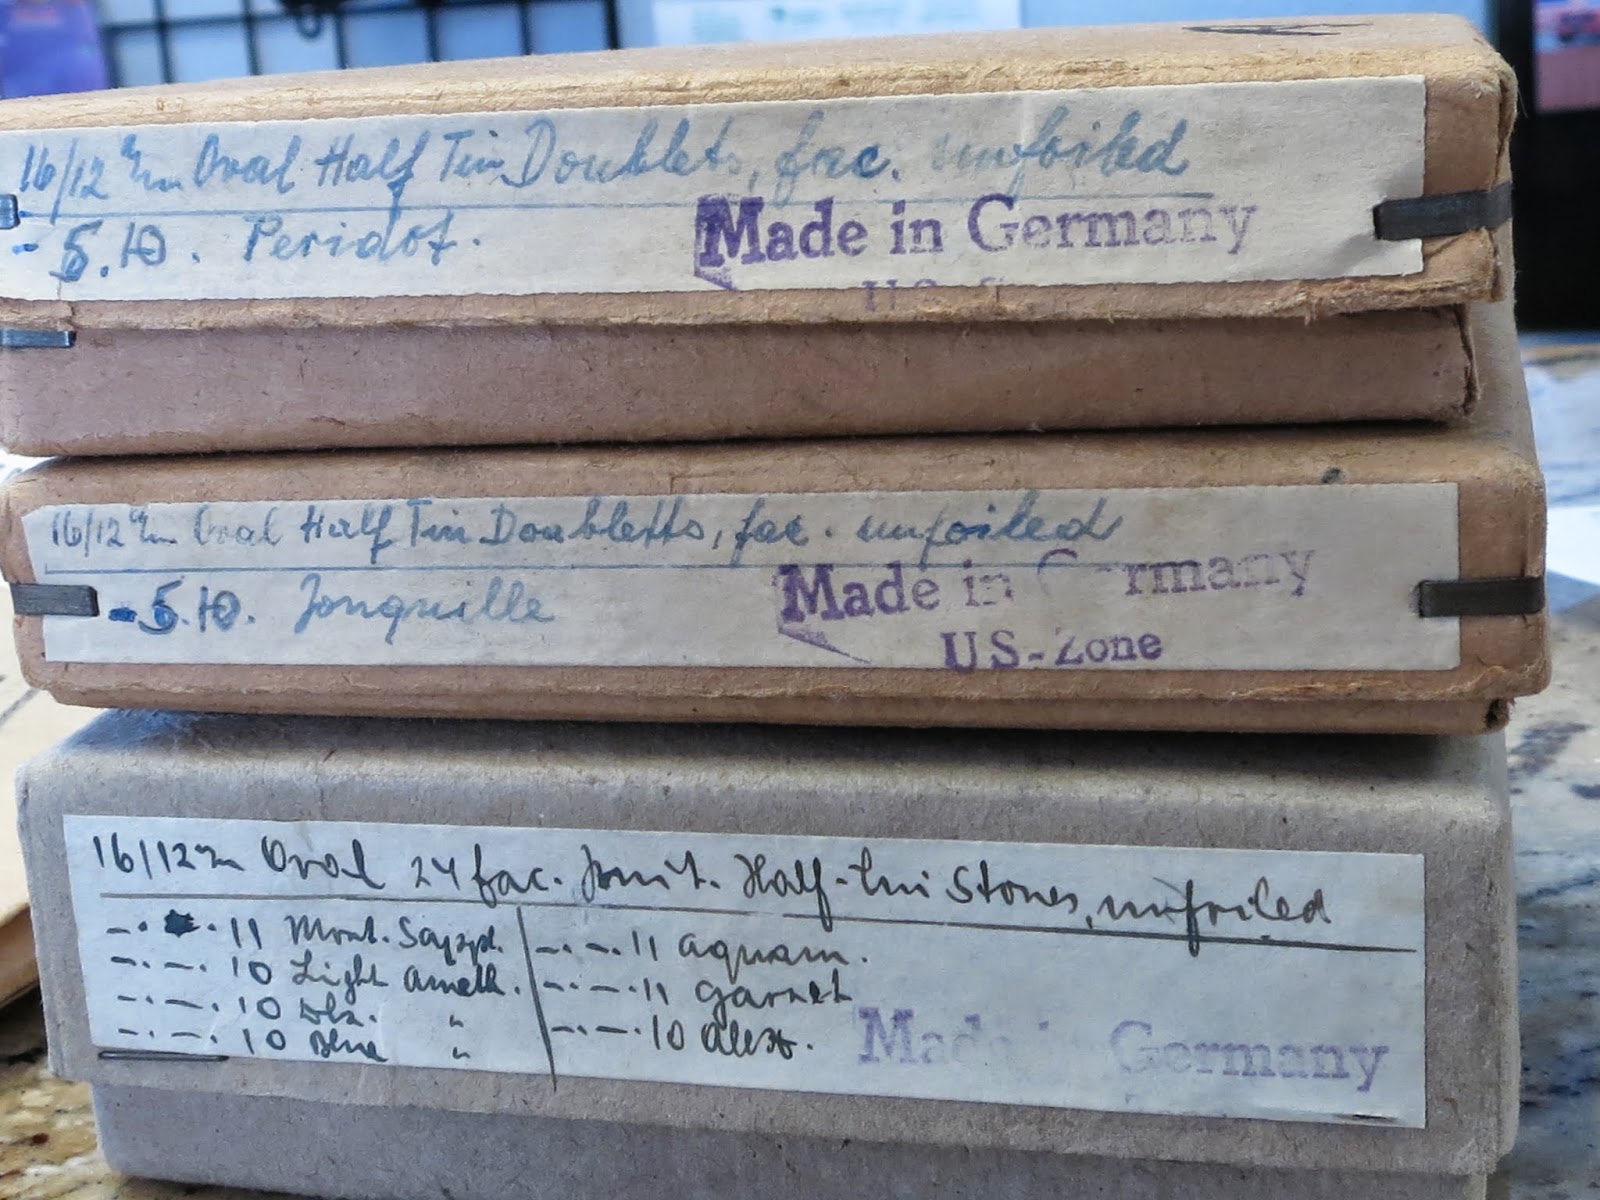 16/12 m/m Oval Half Tin Doublets, fac. unfoiled
- 5.10. Peridot.
Made in Germany
16/12 m/m Oval Half Tin Doubletts, fac. unfoiled
- 5.10. Jonquille
Made in Germany
US-Zone
16/12 m/m Oval 24 fac. Half-Tin Stones, unfoiled
-.-.11 Mont. Sapph.
-.-.10 Light Ameth.
-.-.10 "
-.-.10 Blue "
-.-.11 Aquam.
-.-.11 Garnet
-.-.10 Alex.
Made in Germany